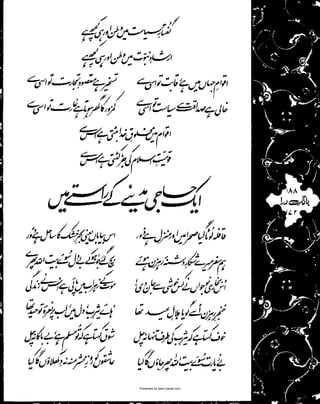 گفتارِ سیاست میں وطن اور ہی کچھ ہے
ارشادِ نبوّت میں وطن اور ہی کچھ ہے
اقوامِ جہاں میں ہے رقابت تو اسی سے
تسخیر ہے مقصودِ تجارت تو اسی سے
خالی ہے صداقت سے سیاست تو اسی سے
کمزور کا گھر ہوتا ہے غارت تو اسی سے
اقوام میں مخلوقِ خدا بٹتی ہے اس سے
قومیّتِ اسلام کی جڑ کٹتی ہے اس سے
ایک حاجی مدینے کے راستے میں
قافلہ لوٹا گیا صحرا میں اور منزل ہے دور
اس بیاباں یعنی بحرِ خشک کا ساحل ہے دور
ہم سفر میرے شکارِ دشنۂ رہزن ہوئے
بچ گئے جو، ہو کے بے دل سوئے بیت اللہ پھرے
اس بخاری نوجواں نے کس خوشی سے جان دی
موت کے زہراب میں پائی ہے اس نے زندگی
خنجرِ رہزن اسے گویا ہلالِ عید تھا
ہائے یثرب دل میں، لب پر نعرۂ توحید تھا
خوف کہتا ہے کہ یثرب کی طرف تنہا نہ چل
شوق کہتا ہے کہ تو مسلم ہے، بے باکانہ چل
بے زیارت سوئے بیت اللہ پھر جاؤں گا کیا
عاشقوں کو روزِ محشر منہ نہ دکھلاؤں گا کیا
۱۸۸
بانگِ درا
۱۷۲
Presented by www.ziaraat.com